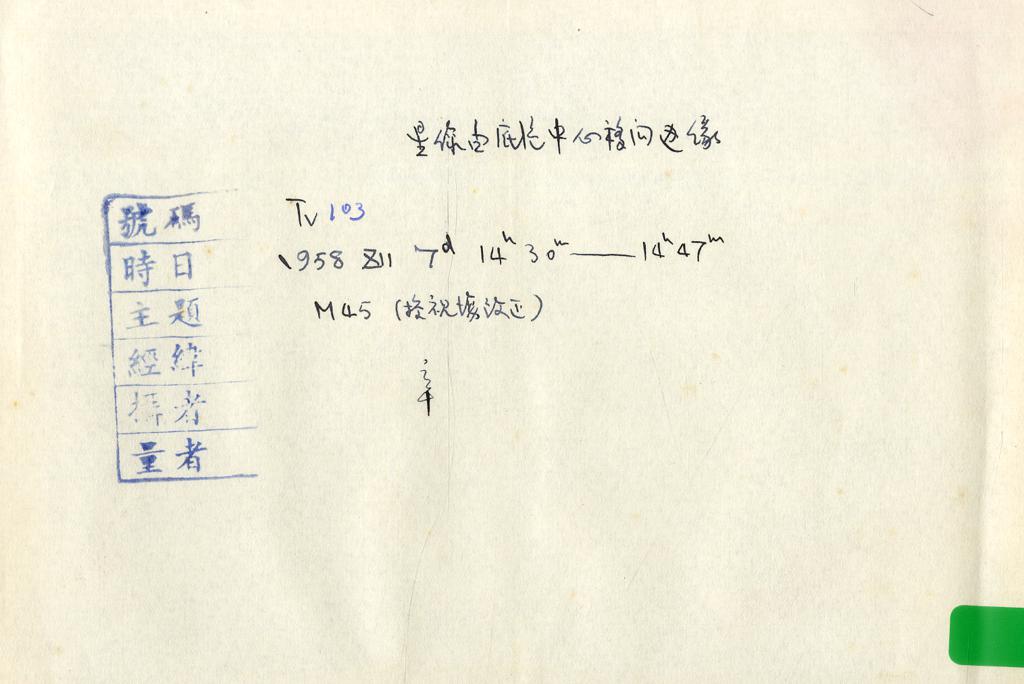 星像由底片中心移向边缘
號碼 Tv 103
時日 1958 XII 7d 14h 30m — 14h 47m
主題 M45 (按視場改正)
經緯
攝者 章
量者